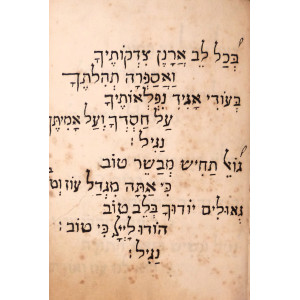 בְּכָל לֵב אֲרַנֵּן צִדְקוֹתֶיךָ
וַאֲסַפְּרָה תְהִלָּתֶךָ
בְּעוֹדִי אַגִּיד נִפְלְאוֹתֶיךָ
עַל חַסְדְּךָ וְעַל אֲמִתֶּךָ
נָגִיל:
גּוֹאֵל תָּחִישׁ מְבַשֵּׂר טוֹב
כִּי אַתָּה מִגְדַּל עוֹז וְטוֹ
גְּאוּלִים יוֹדוּךָ בְּלֵב טוֹב
הוֹדוּ לַייָ כִּי טוֹב:
נָגִיל: